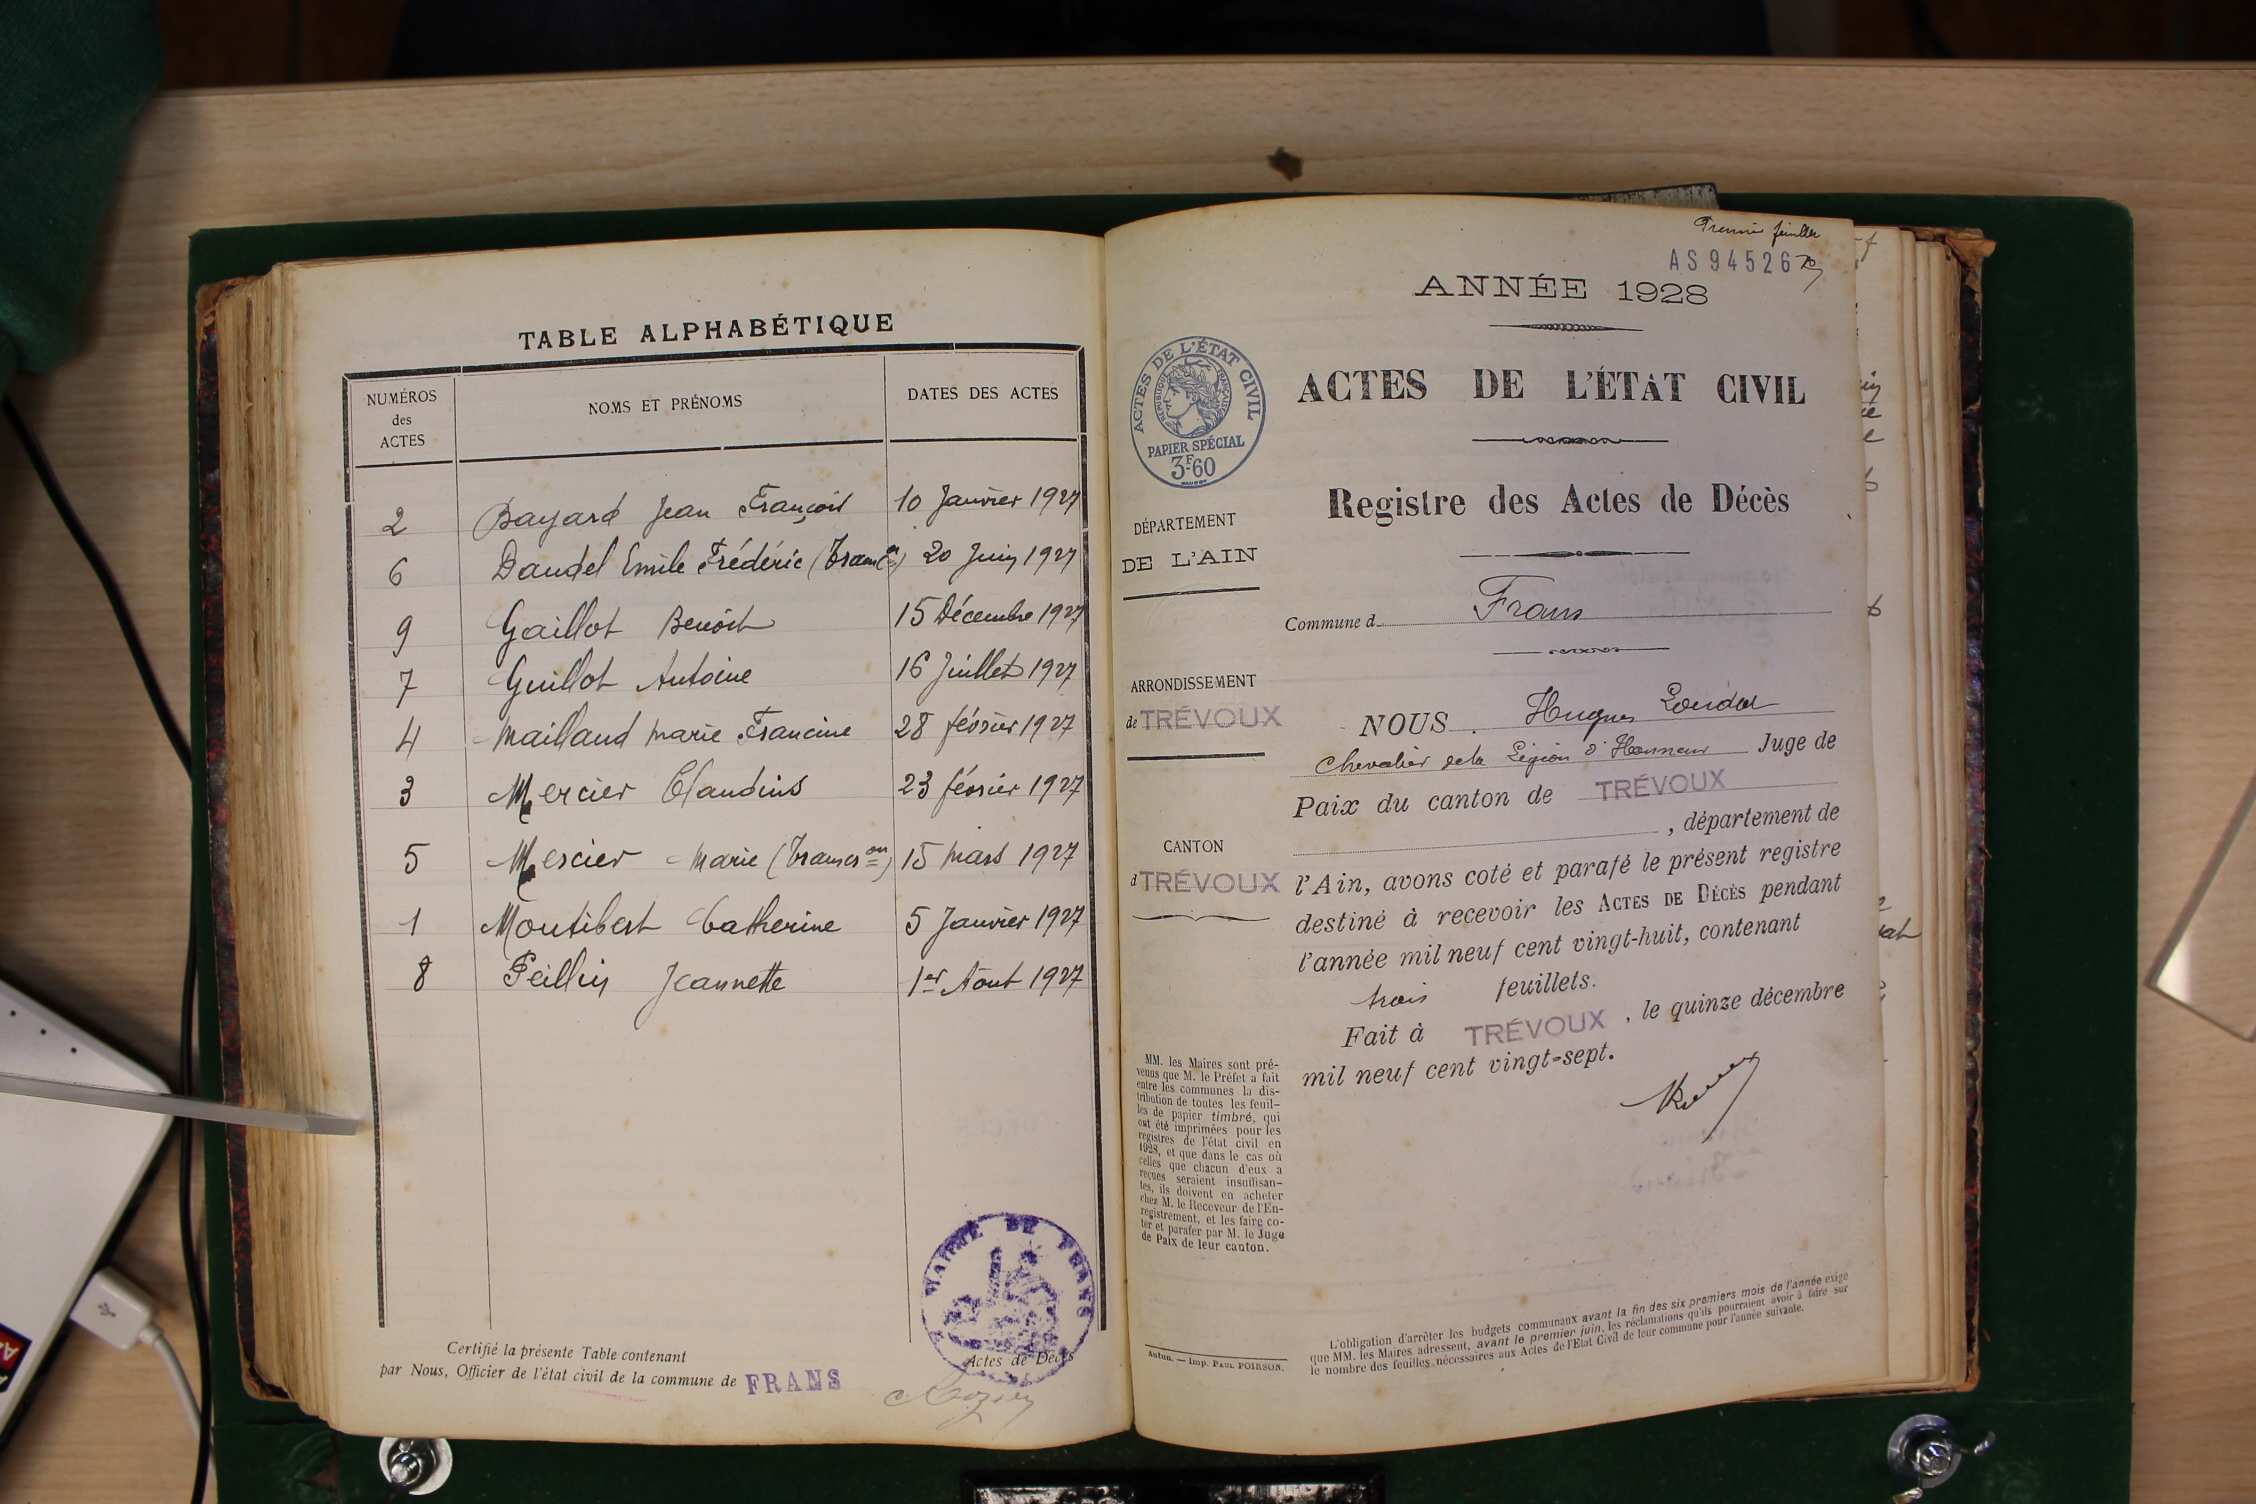 TABLE ALPHABÉTIQUE
NUMÉROS des ACTES NOMS ET PRÉNOMS DATES DES ACTES
2 Bayard Jean François 10 Janvier 1927
6 Daudel Emile Frédéric (Transcon) 20 Juin 1927
9 Gaillot Benoit 15 Décembre 1927
7 Guillot Antoine 16 Juillet 1927
4 Maillaud Marie Francine 28 février 1927
3 Mercier Claudius 23 février 1927
5 Mercier Marie (Transcron) 15 Mars 1927
1 Montibert Catherine 5 Janvier 1927
8 Peillin Jeannette 1er Aout 1927
MAIRIE DE FRANS
Certifié la présente Table contenant Actes de Décès
par Nous, Officier de l'état civil de la commune de FRANS
Premier feuillet
AS 94526
ANNÉE 1928
ACTES DE L'ÉTAT CIVIL
RÉPUBLIQUE FRANÇAISE
PAPIER SPÉCIAL
3F.60
ACTES DE L'ÉTAT CIVIL
Registre des Actes de Décès
DÉPARTEMENT
DE L'AIN
Commune d Frans
ARRONDISSEMENT
de TRÉVOUX
CANTON
d TRÉVOUX
NOUS Hugues
Chevalier de la Légion d'Honneur Juge de
Paix du canton de TRÉVOUX
, département de
l'Ain, avons coté et parafé le présent registre
destiné à recevoir les ACTES DE DÉCÈS pendant
l'année mil neuf cent vingt-huit, contenant
trois feuillets.
Fait à TRÉVOUX , le quinze décembre
mil neuf cent vingt-sept.
MM. les Maires sont pré-
venus que M. le Préfet a fait
entre les communes la dis-
tribution de toutes les feuil-
les de papier timbré, qui
ont été imprimées pour les
registres de l'état civil en
1928, et que dans le cas où
celles que chacun d'eux a
reçues seraient insuffisan-
tes, ils doivent en acheter
chez M. le Receveur de l'En-
registrement, et les faire co-
ter et parafer par M. le Juge
de Paix de leur canton.
Autun. — Imp. PAUL POIRSON.
L'obligation d'arrêter les budgets communaux avant la fin des six premiers mois de l'année exige
que MM. les Maires adressent, avant le premier juin, les réclamations qu'ils pourraient avoir à faire sur
le nombre des feuilles nécessaires aux Actes de l'Etat Civil de leur commune pour l'année suivante.